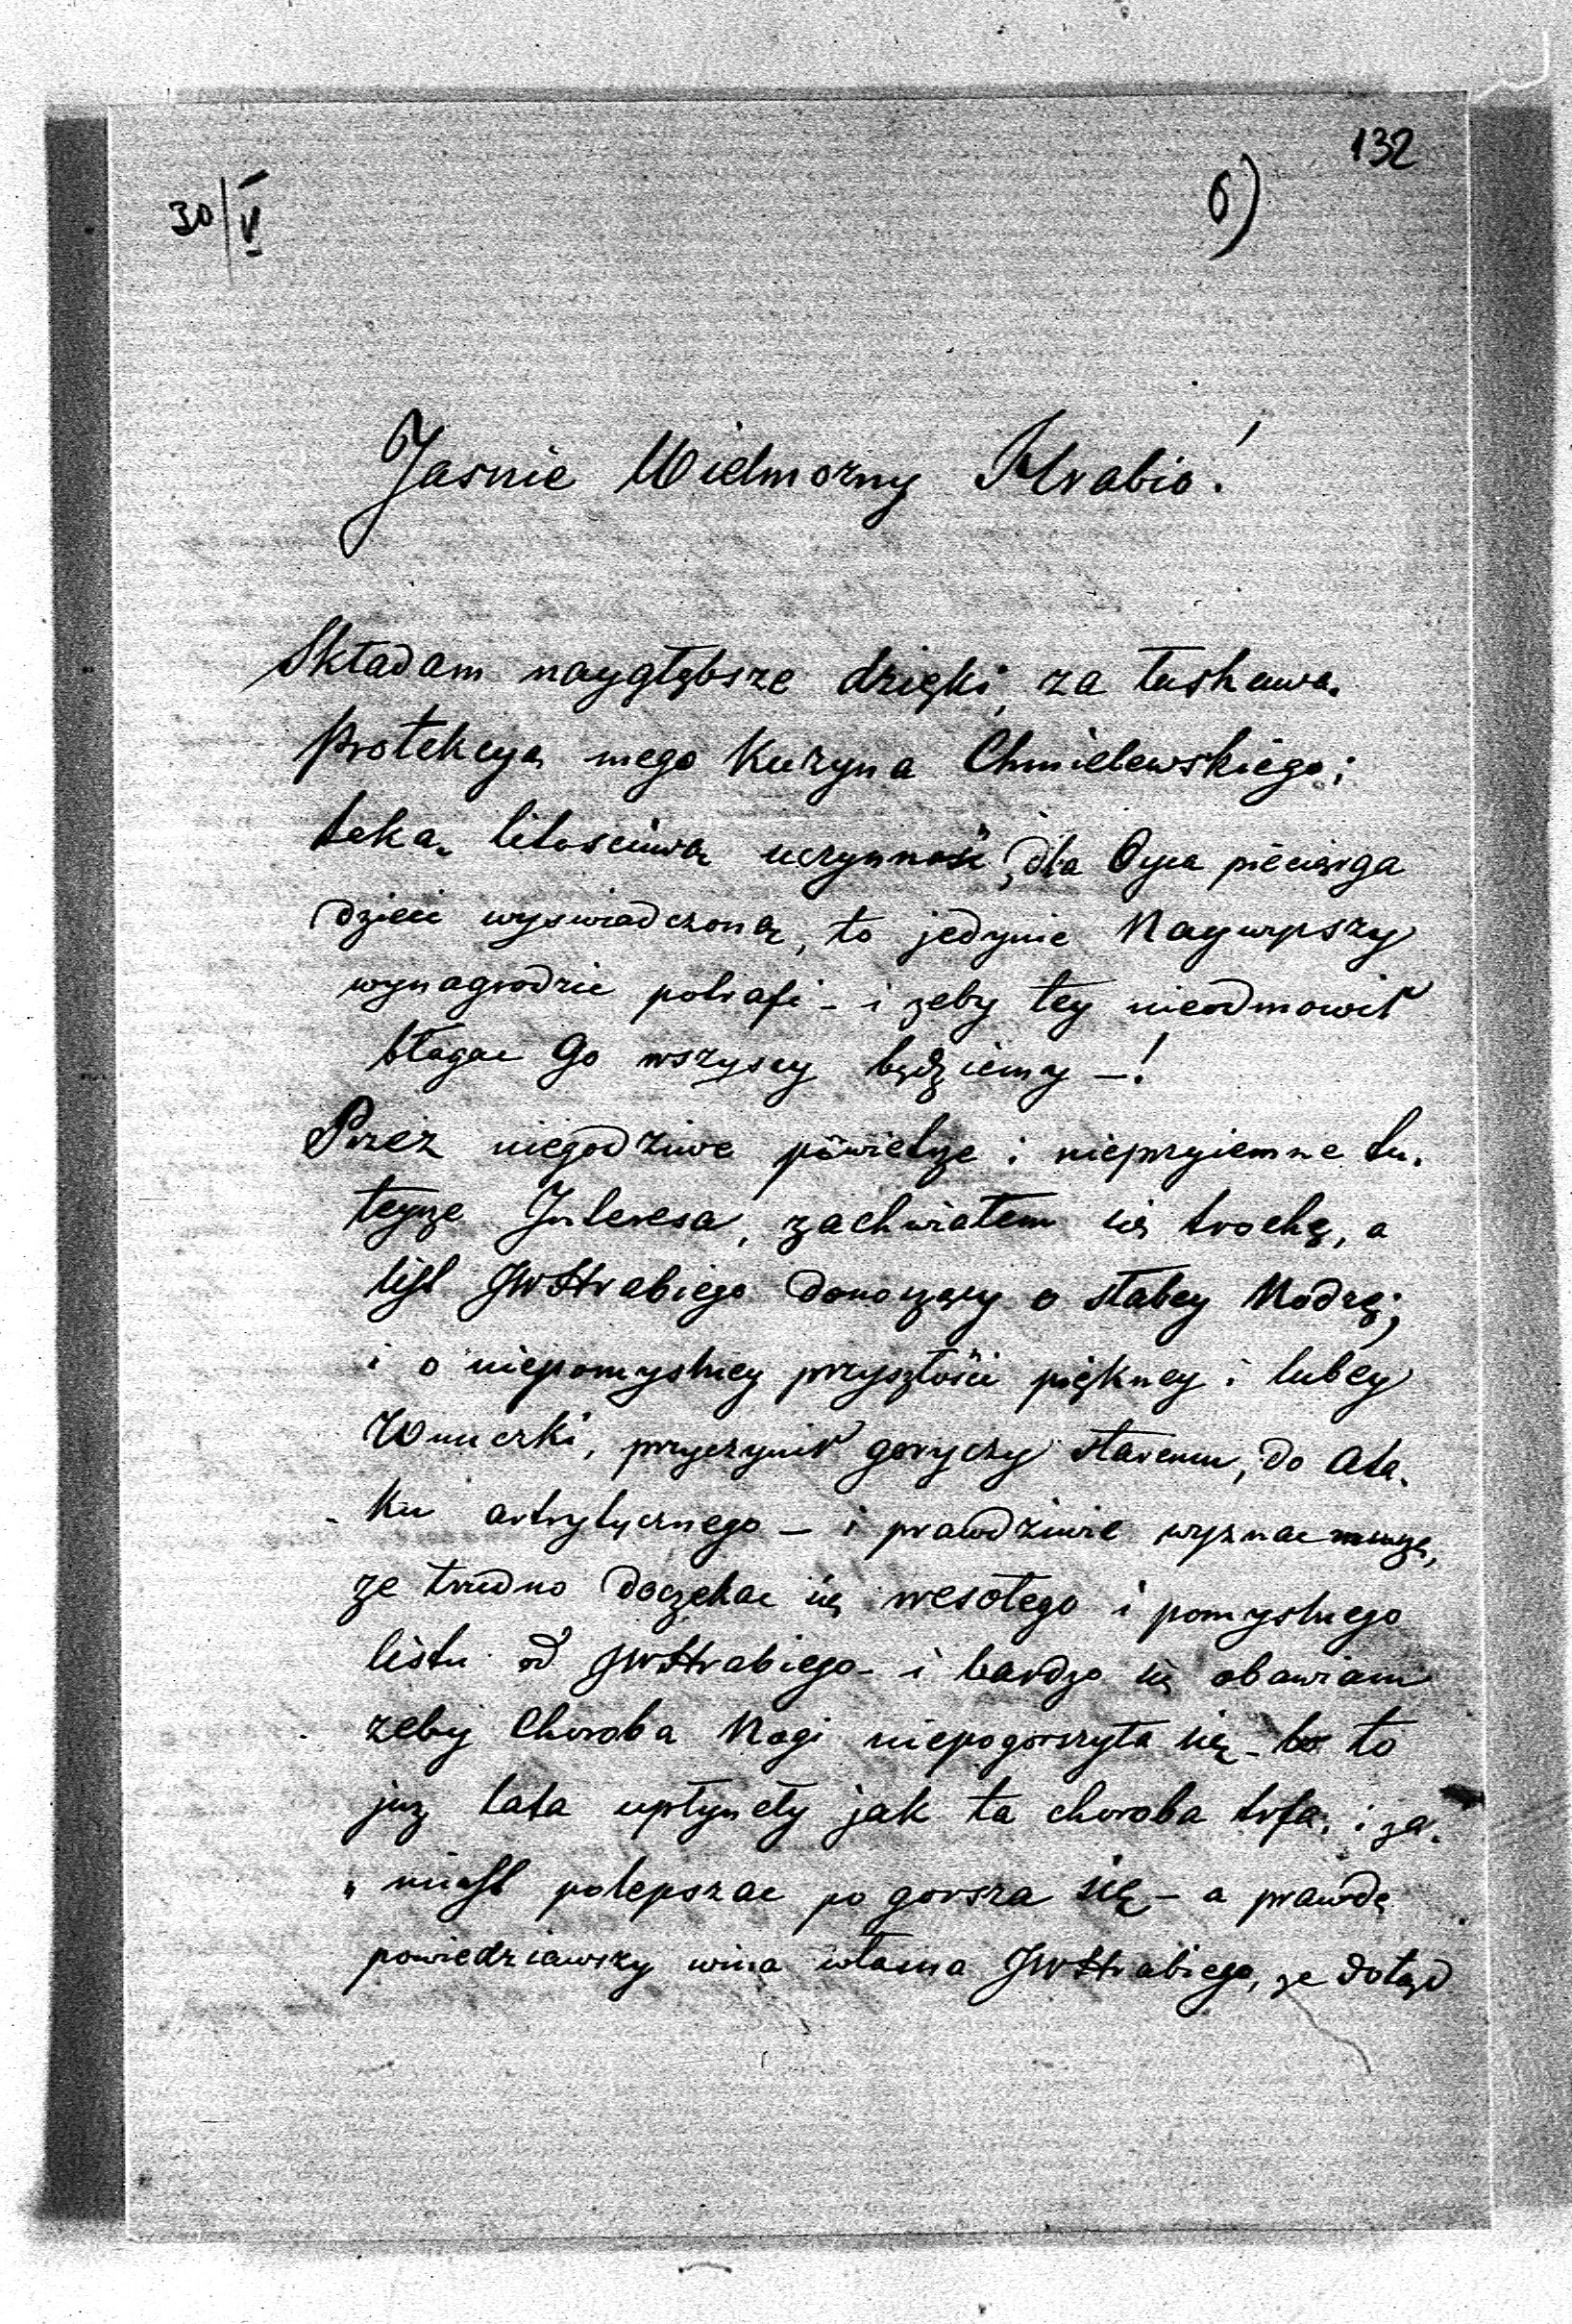 132
30/V
6)
Jasnie Wielmożny Hrabio!
Składam naygłębsze dzięki za łaskawą
Protekcyą mego Kuzyna Chmielewskiego;
taką litosciwą uczynność, dla Oyca pięciorga
dzieci wyswiadczoną, to jedynie Naywyższy
wynagrodzic potrafi - i żeby tey nieodmowił
błagac Go wszyscy będziemy -!
Przez niegodziwe powietrze i nieprzyiemne tu.
teysze Interesa, zachwiałem się trochę, a
list JWHrabiego donoszący o słabey Nodze;
i o niepomyslney przyszłości piękney i lubey
Wnuczki, przyczynił goryczy staremu, do Ata.
ku artrytycznego - i prawdziwie wyznac muszę,
ze trudno doczekac się wesołego i pomyslnego
listu od JWHrabiego - i bardzo się obawiam
zeby Choroba Nogi niepogorszyła się - bo to
juz lata upłynęły jak ta choroba trfa, i za.
miast polepszac po gorsza się - a prawdę
powiedziawszy wina własna JWHrabiego, ze dotąd